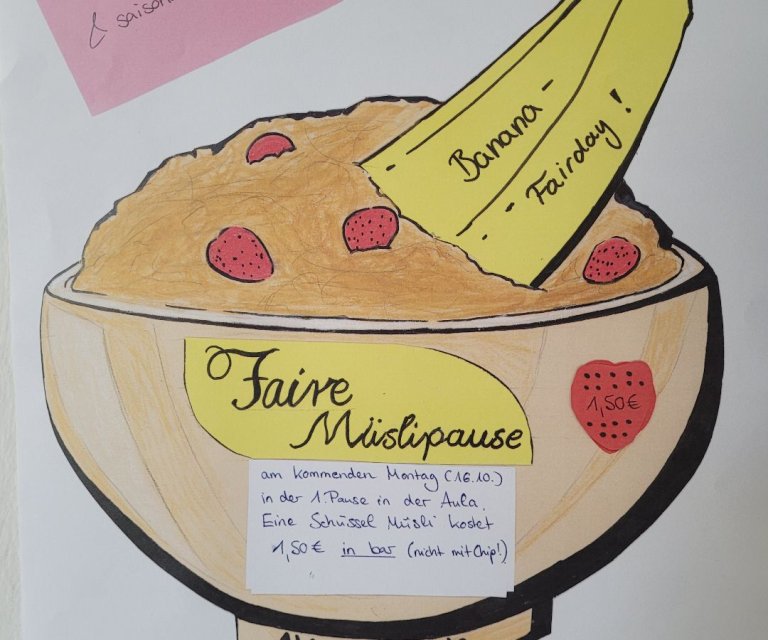 Banana-
Fairday!
Faire
Müslipause
1,50€
am kommenden Montag (16.10.)
in der 1.Pause in der Aula.
Eine Schüssel Müsli kostet
1,50€ in bar (nicht mit Chip!)